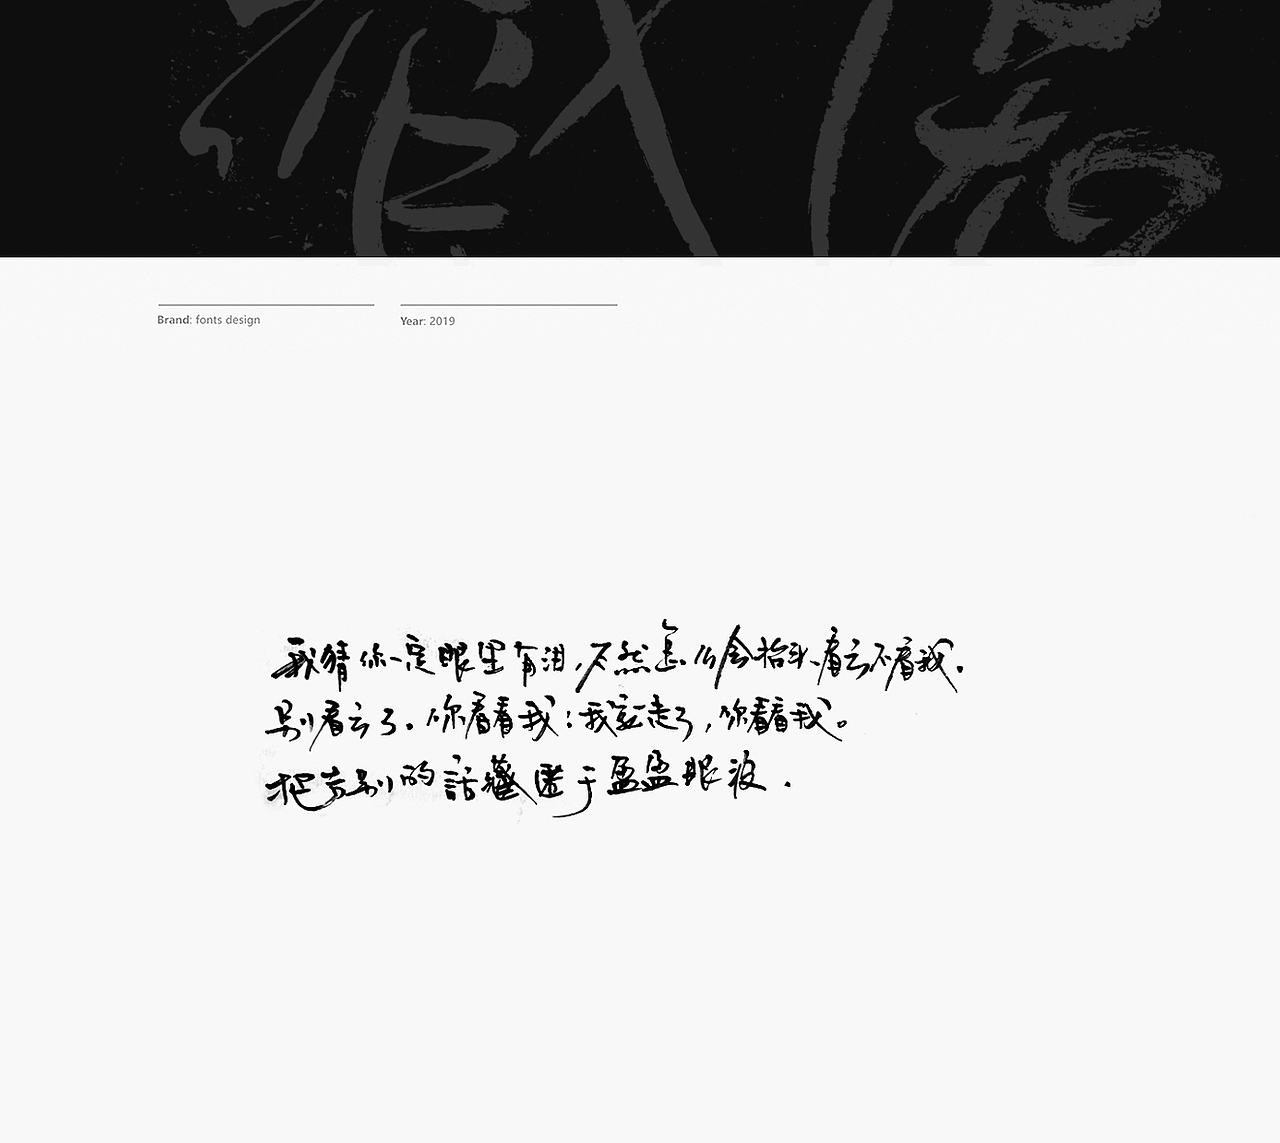 Brand: fonts design
Year: 2019
我猜你一定眼里有泪,不然怎么会抬头看云不看我。
别看云了。你看看我:我要走了,你看看我。
把告别的話藏匿于盈盈眼波.